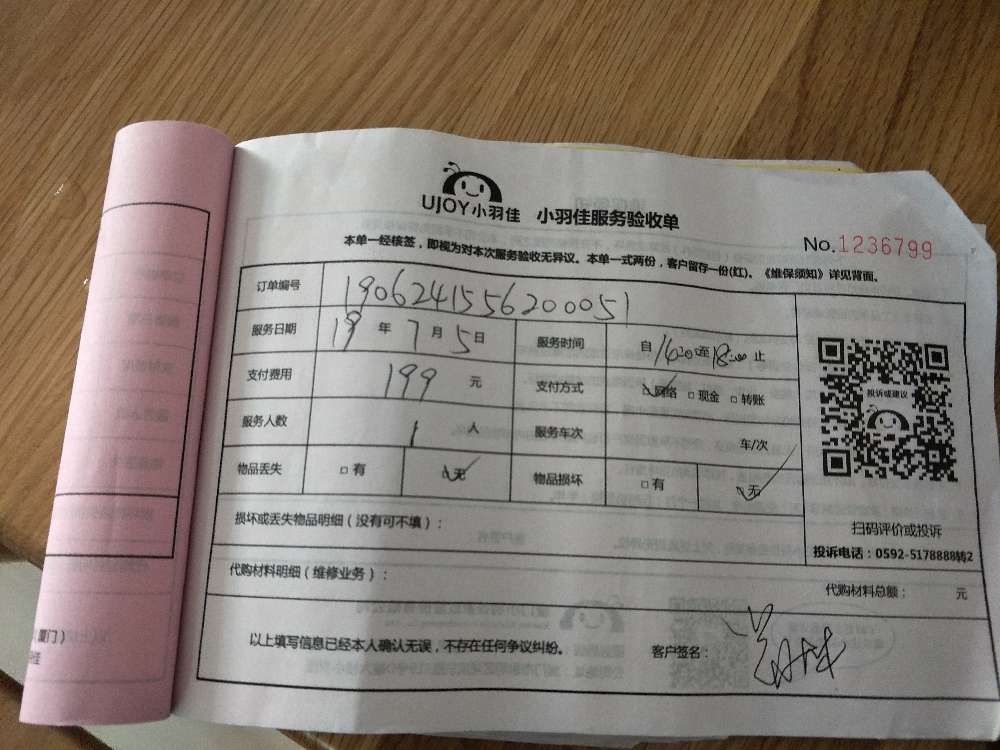 UJOY小羽佳 小羽佳服务验收单
No.1236799
本单一经核签，即视为对本次服务验收无异议。本单一式两份，客户留存一份(红)。《维保须知》详见背面。
订单编号 1906241556200051
服务日期 19 年 7 月 5 日 服务时间 自 14:00 至 18:00 止
支付费用 199 元 支付方式 网络 □ 现金 □ 转账
服务人数 1 人 服务车次 车/次
投诉或建议
物品丢失 □ 有 无 物品损坏 □ 有 无
扫码评价或投诉
损坏或丢失物品明细（没有可不填）：
投诉电话：0592-5178888转2
代购材料明细（维修业务）： 代购材料总额： 元
以上填写信息已经本人确认无误，不存在任何争议纠纷。 客户签名：
厦门）